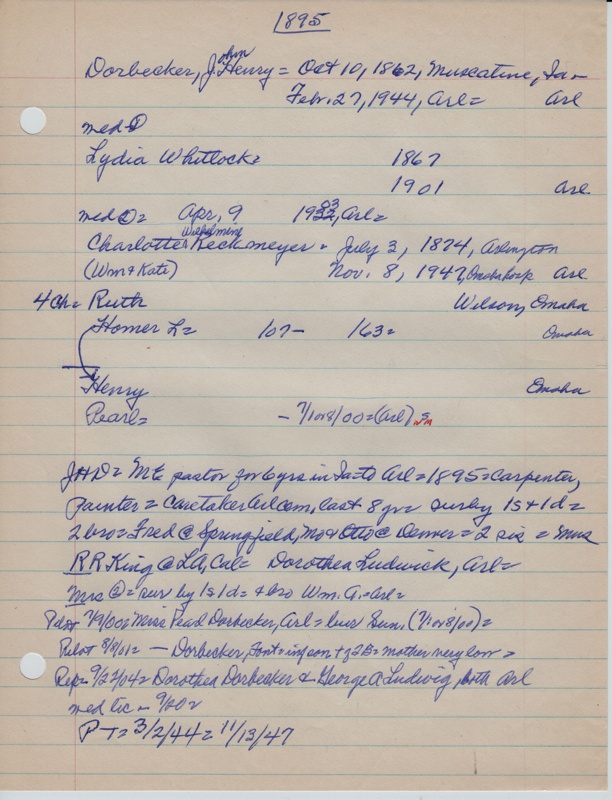 1895
Dorbecker, J. John Henry = Oct 10, 1862, Muscatine, Ia =
Febr. 27, 1944, Arl = Arl
med ①
Lydia Whitlock = 1867
1901 Arl
med ② = Apr, 9 1903, Arl =
Charlotte Wilhelmine Keckmeyer = July 3, 1874, Arlington
(Wm & Kate) Nov. 8, 1947, Omaha hosp Arl
4 Ch = Ruth Wilson, Omaha
Homer L = 107 - 163 = Omaha
Henry Omaha
Pearl = - 7/1 or 8/00 = (Arl)
JHD = ME pastor for 6 yrs in Ia = to Arl = 1895 = Carpenter,
Painter = Caretaker Arl cem, last 8 yrs = surby 1s + 1d =
2 bro = Fred @ Springfield, Mo & Otto @ Denver = 2 sis = Mrs
R R King @ LA, Cal = Dorothea Ludwick, Arl =
Mrs ② = sur by 1s 1d = & bro Wm. A. = Arl =
Pilot 7/9/00 = Miss Pearl Dorbecker, Arl = bur Sun. (7/1 or 8/00) =
Pilot 8/8/01 = — Dorbecker, Font = inf son = mother very low =
Rep = 9/22/04 = Dorothea Dorbecker & George A Ludwig, both Arl
med lic - 9/20 =
P T = 3/2/44 = 11/13/47